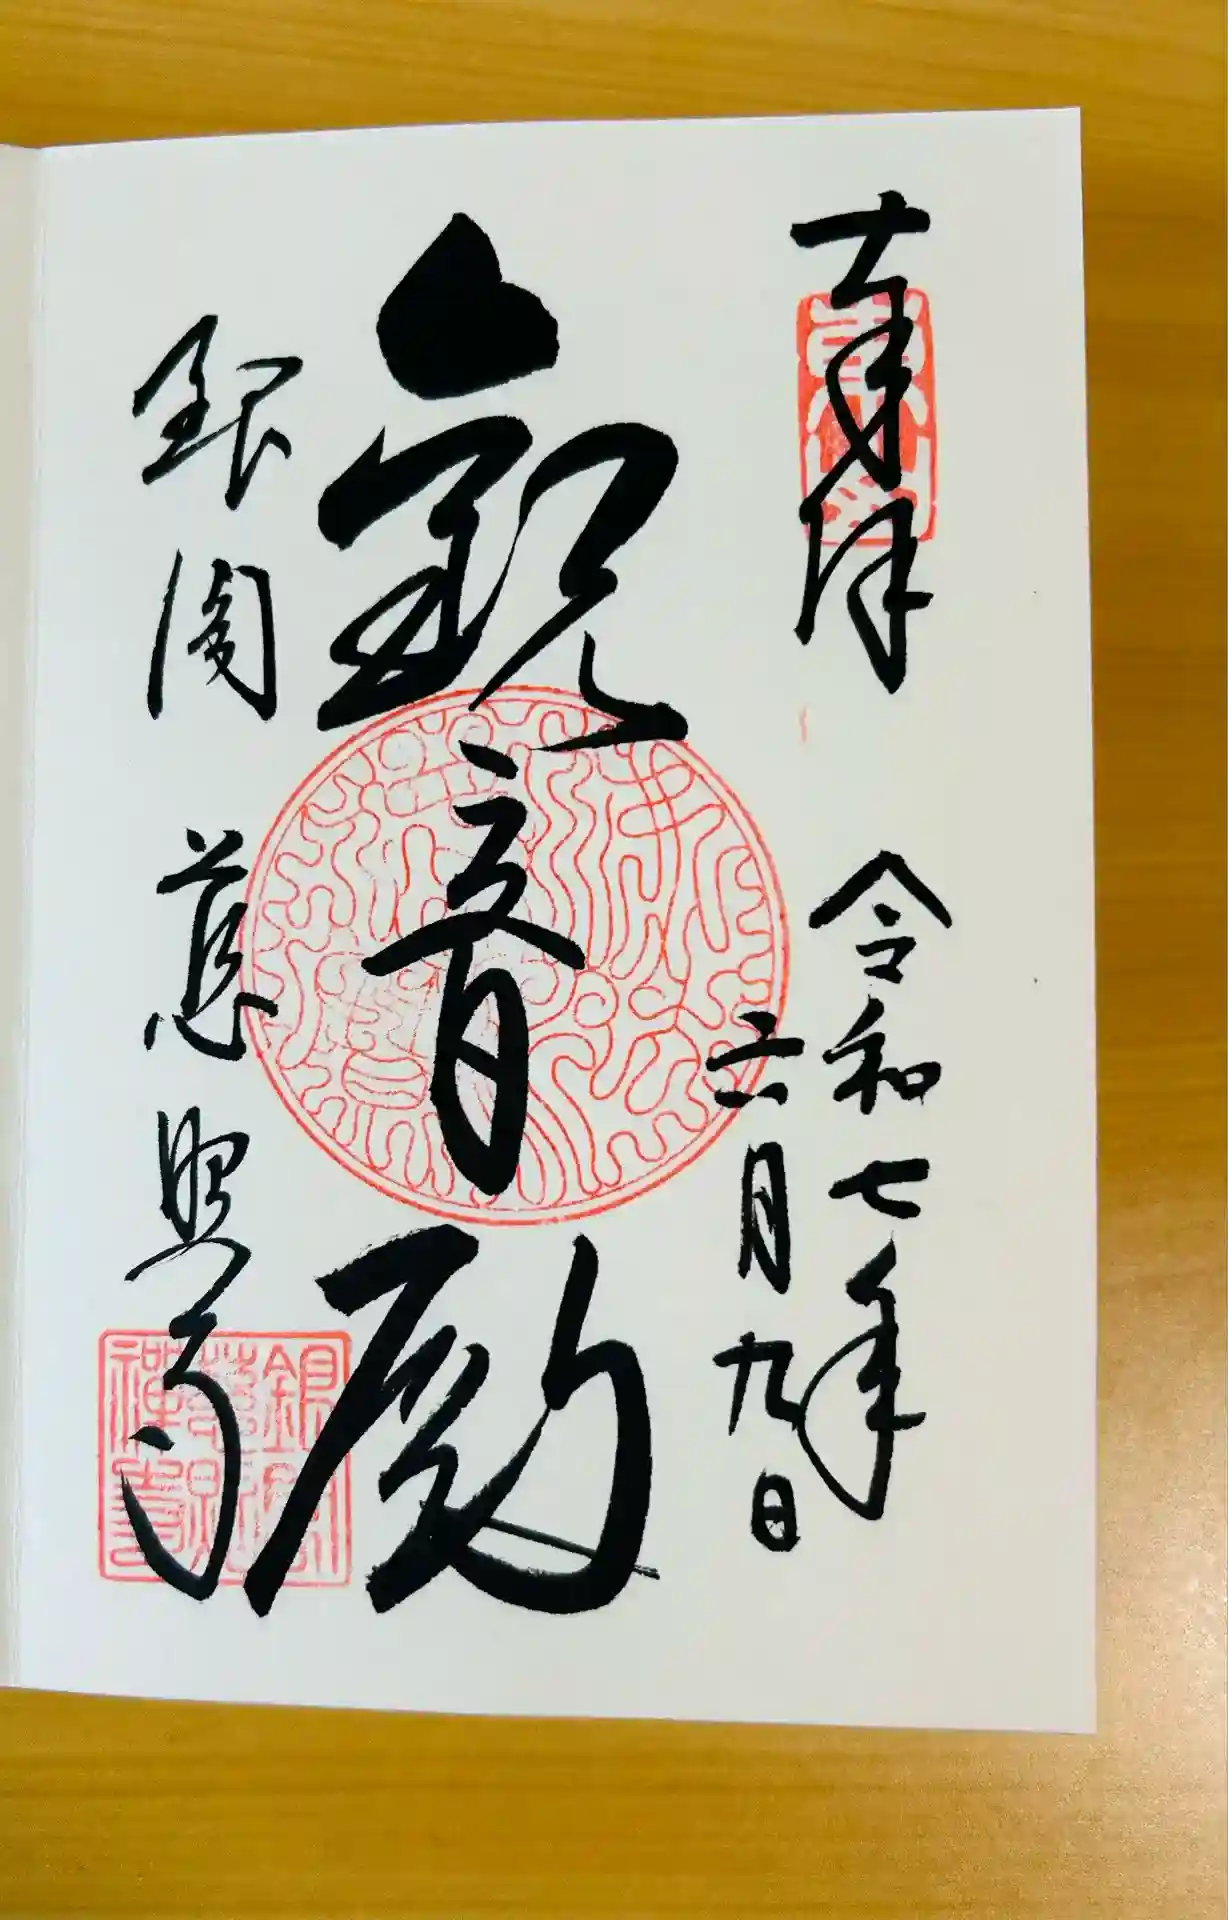 奉拝
令和七年
六月九日
観音殿
銀閣 慈照寺
銀閣
慈照
禅寺